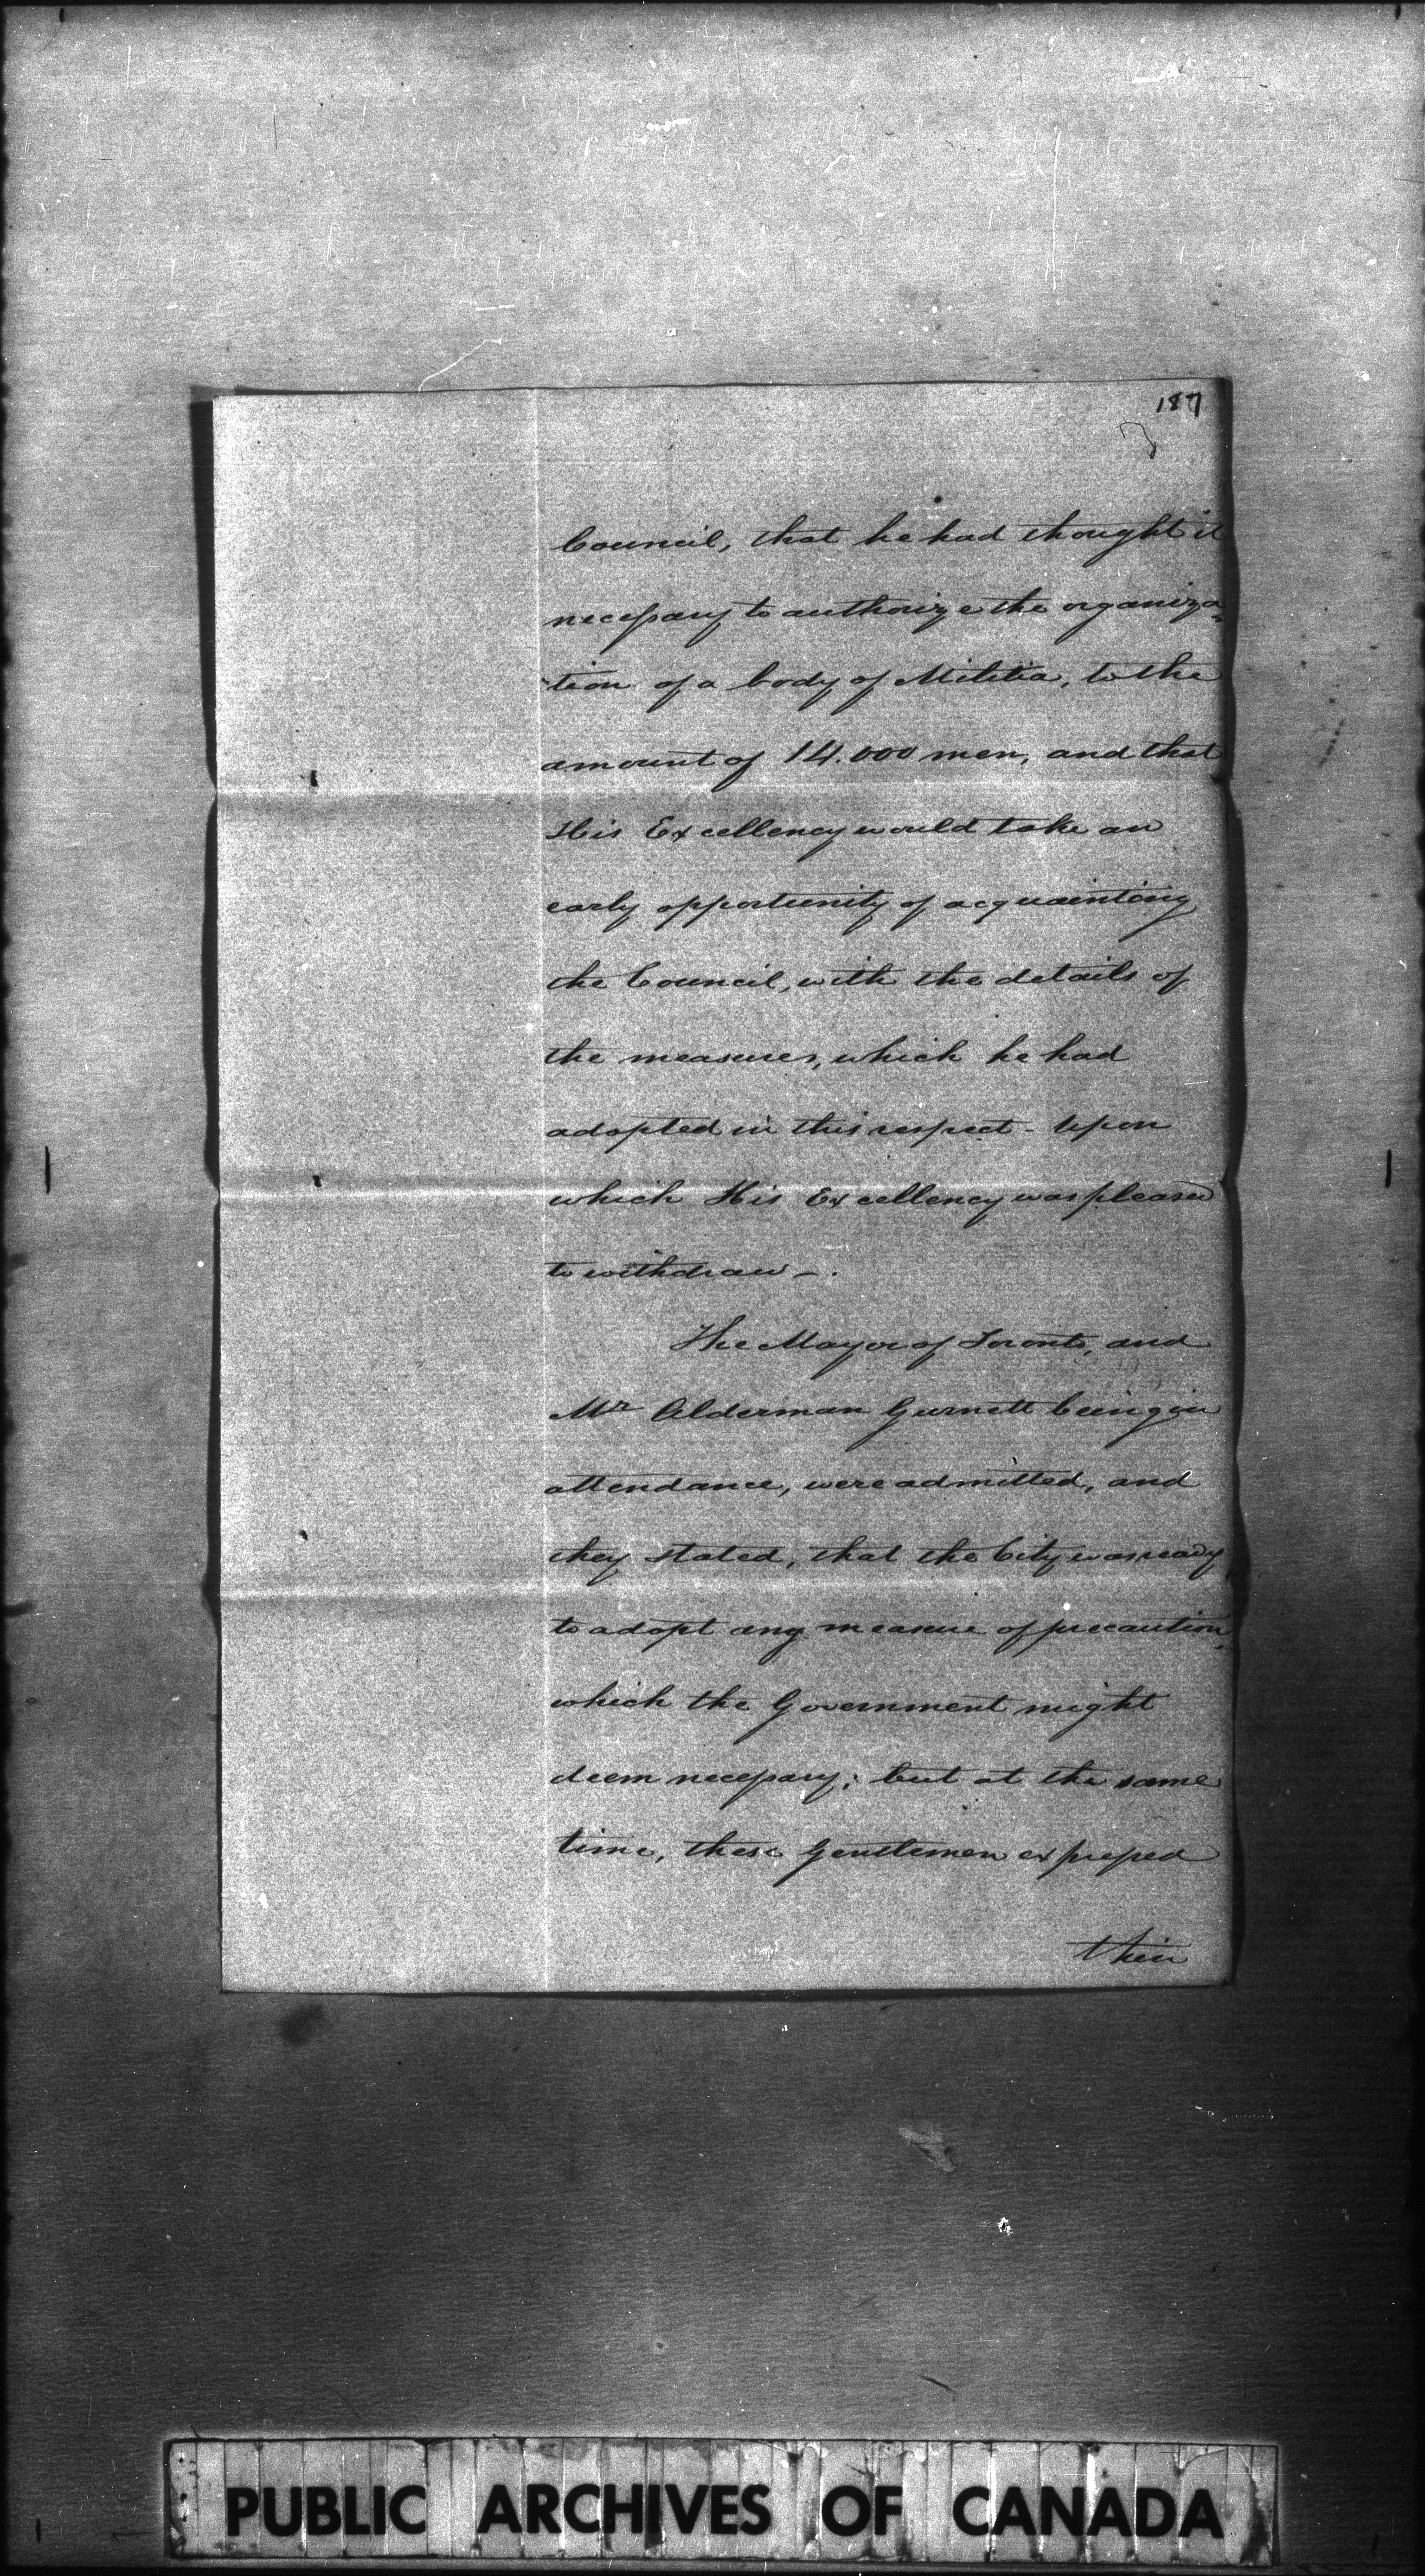 187
Council, that he had thought it
necessary to authorize the organiza=
tion of a body of Militia, to the
amount of 14.000 men, and that
His Excellency would take an
early opportunity of acquainting
the Council, with the details of
the measures, which he had
adopted in this respect - Upon
which His Excellency was pleased
to withdraw -.
The Mayor of Toronto, and
Mr Alderman Gurnett being in
attendance, were admitted, and
they stated, that the City was ready
to adopt any measure of precaution,
which the Government might
deem necessary; but at the same
time, these Gentlemen expressed
their
PUBLIC ARCHIVES OF CANADA